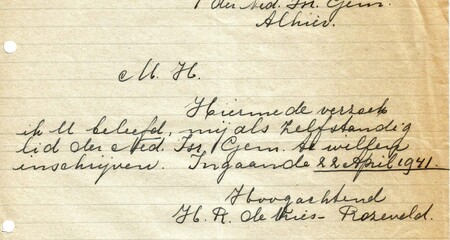 der Ned. Isr. Gem.
Alhier.
M. H.
Hiermede verzoek
ik U beleefd, mij als zelfstandig
lid der Ned. Isr. Gem. te willen
inschrijven. Ingaande 22 April 1941.
Hoogachtend
H. R. de Vries - Rozeveld.